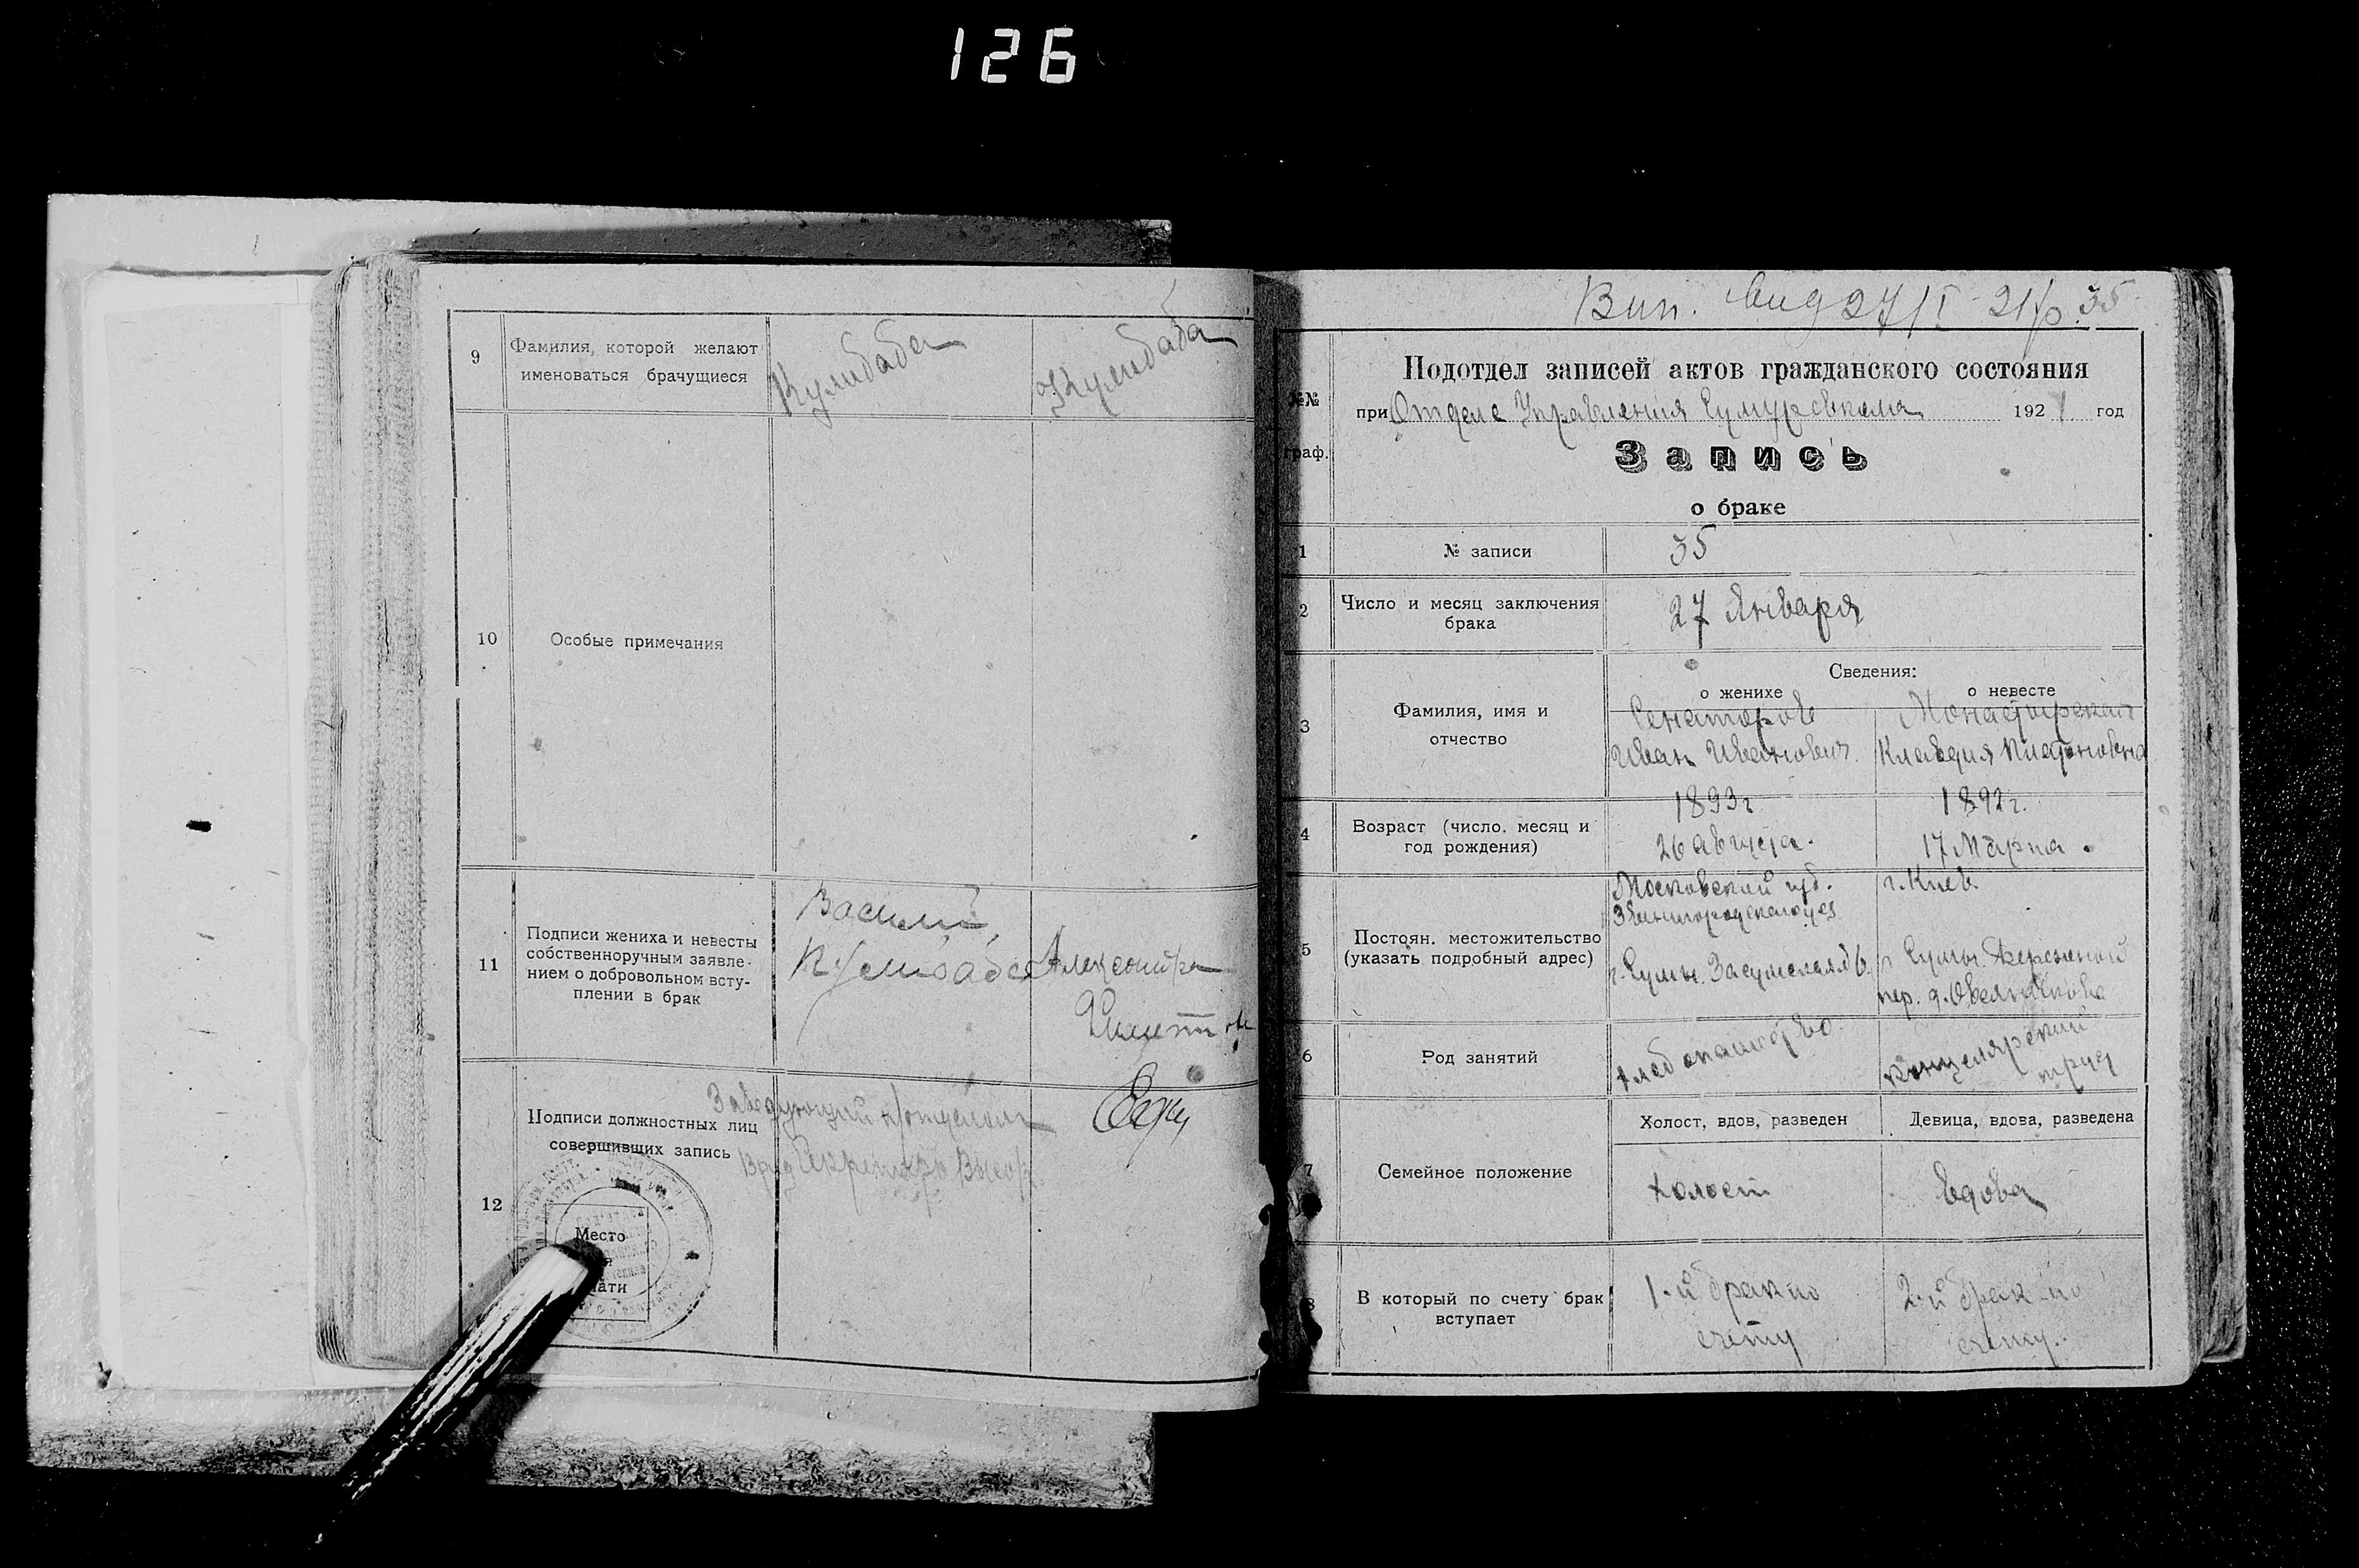 126
9
Фамилия, которой желают
именоваться брачущиеся
Кулибаба
Кулибаба
10
Особые примечания
11
Подписи жениха и невесты
собственноручным заявле-
нием о добровольном всту-
плении в брак
Василий
Кулибаба
Александра
12
Подписи должностных лиц
совершивших запись
Заведующий п/отделом
Врид Секретарь
Место
Вып. 27/I-21 р. 35
№№
граф.
Подотдел записей актов гражданского состояния
при Отделе Управления Сумуревкома 1921 год
Запись
о браке
1
№ записи
35
2
Число и месяц заключения
брака
27 Января
Сведения:
о женихе
о невесте
3
Фамилия, имя и
отчество
Сенаторов
Иван Иванович
Монастырская
Клавдия Платоновна
4
Возраст (число, месяц и
год рождения)
1893 г.
26 августа.
1892 г.
17 Марта.
5
Постоян. местожительство
(указать подробный адрес)
Московский губ.
Звенигородского уез
г. Сумы. Засумская
г. Киев
г. Сумы.
пер. д.
6
Род занятий
хлебопашество.
канцелярский
труд
7
Семейное положение
Холост, вдов, разведен
Девица, вдова, разведена
холост
вдова
8
В который по счету брак
вступает
1-й брак по
счету
2-й брак по
счету.